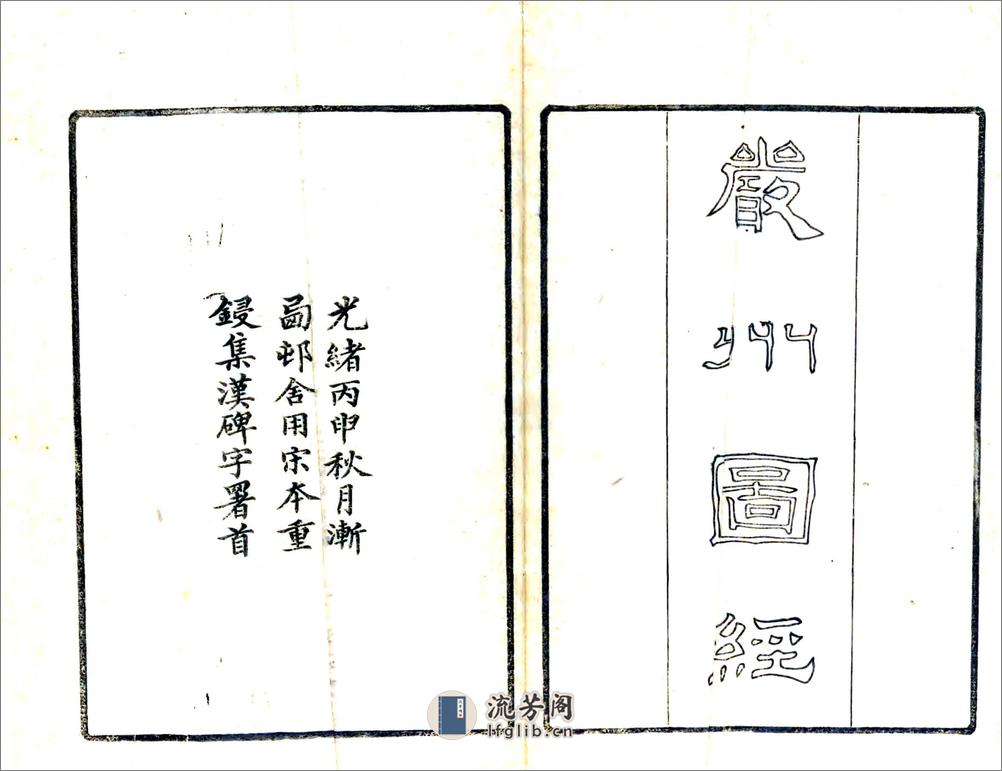 嚴州圖經
光緒丙申秋月漸
啚邨舍用宋本重
鋟集漢碑字署首
流芳阁
lfglib.cn